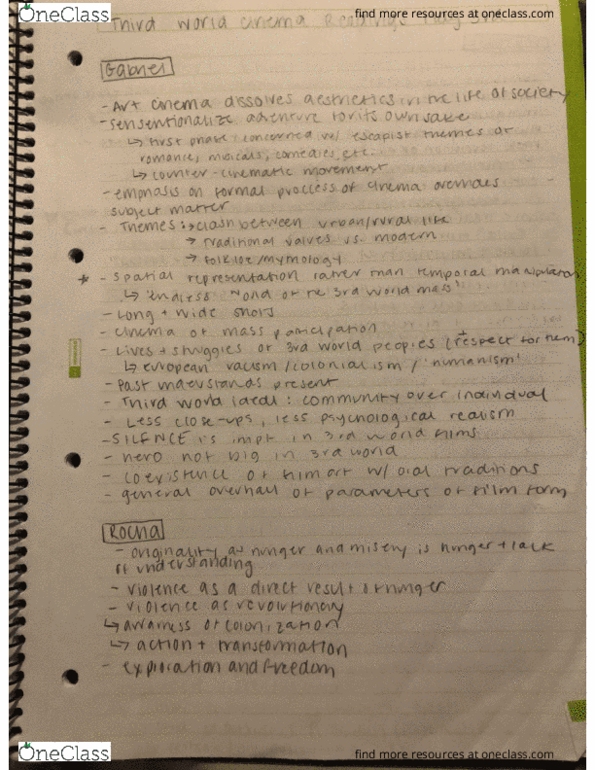 OneClass
find more resources at oneclass.com
Third World Cinema Readings
Gabriel
- Art cinema dissolves aesthetics in the life of society
- sensentionalize adventure for its own sake
↳ first phase concerned w/ escapist themes of
romance, musicals, comedies, etc.
↳ counter-cinematic movement
- emphasis on formal process of cinema overrides
subject matter
- Themes: → clash between urban/rural life
→ traditional values vs. modern
→ folklore/mythology
* - spatial representation rather than temporal manipulation
↳ 'endless of the 3rd world mass'
- Long + wide shots
- cinema of mass participation
- Lives + struggles of 3rd world peoples (+ respect for them)
↳ european racism/colonialism/'humanism'
- Past understands present
- Third world ideal: community over individual
- Less close-ups, less psychological realism
- SILENCE is impt in 3rd world films
- hero not big in 3rd world
- coexistence of film art w/ oral traditions
- general overhall of parameters of film form
Rocha
- originality as hunger and misery is hunger + lack
of understanding
- violence as a direct result of hunger
- violence as revolutionary
↳ awarness of colonization
↳ action + transformation
- exploration and freedom
OneClass
find more resources at oneclass.com